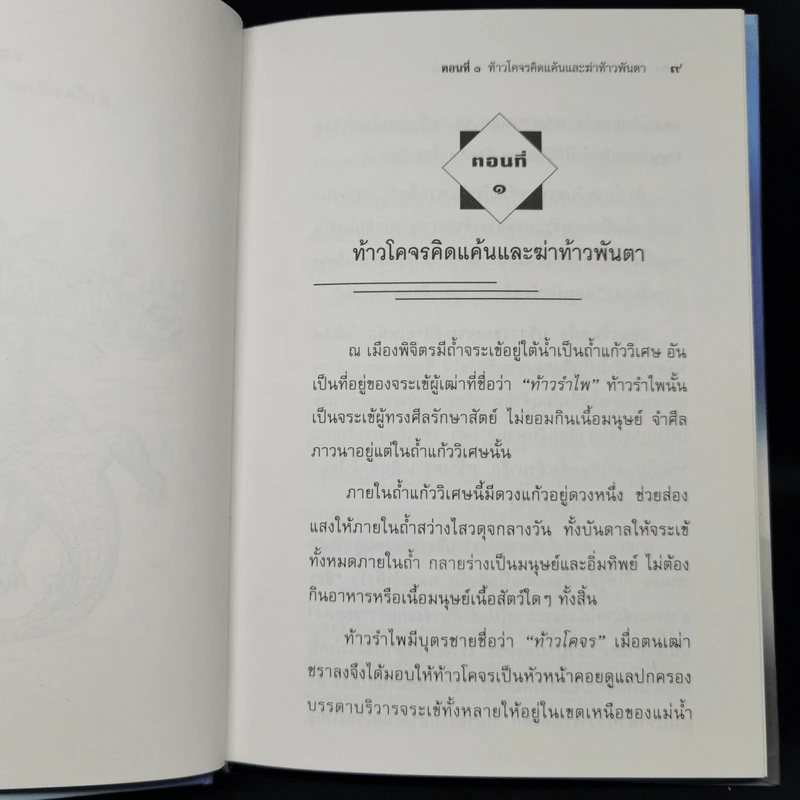 ตอนที่ ๑ ท้าวโคจรคิดแค้นและฆ่าท้าวพันตา ๙
ตอนที่
๑
ท้าวโคจรคิดแค้นและฆ่าท้าวพันตา
ณ เมืองพิจิตรมีถ้ำจระเข้อยู่ใต้น้ำเป็นถ้ำแก้ววิเศษ อัน
เป็นที่อยู่ของจระเข้ผู้เฒ่าที่ชื่อว่า “ท้าวรำไพ” ท้าวรำไพนั้น
เป็นจระเข้ผู้ทรงศีลรักษาสัตย์ ไม่ยอมกินเนื้อมนุษย์ จำศีล
ภาวนาอยู่แต่ในถ้ำแก้ววิเศษนั้น
ภายในถ้ำแก้ววิเศษนี้มีดวงแก้วอยู่ดวงหนึ่ง ช่วยส่อง
แสงให้ภายในถ้ำสว่างไสวดุจกลางวัน ทั้งบันดาลให้จระเข้
ทั้งหมดภายในถ้ำ กลายร่างเป็นมนุษย์และอิ่มทิพย์ ไม่ต้อง
กินอาหารหรือเนื้อมนุษย์เนื้อสัตว์ใดๆ ทั้งสิ้น
ท้าวรำไพมีบุตรชายชื่อว่า “ท้าวโคจร” เมื่อตนเฒ่า
ชราลงจึงได้มอบให้ท้าวโคจรเป็นหัวหน้าคอยดูแลปกครอง
บรรดาบริวารจระเข้ทั้งหลายให้อยู่ในเขตเหนือของแม่น้ำ